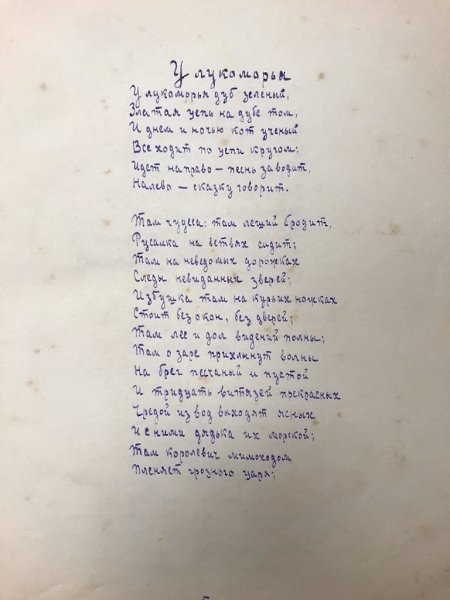 У лукоморья
У лукоморья дуб зеленый,
Златая цепь на дубе том,
И днем и ночью кот ученый
Все ходит по цепи кругом;
Идет направо – песнь заводит,
Налево – сказку говорит.
Там чудеса: там леший бродит,
Русалка на ветвях сидит;
Там на неведомых дорожках
Следы невиданных зверей;
Избушка там на курьих ножках
Стоит без окон, без дверей;
Там лес и дол видений полны;
Там о заре прихлынут волны
На брег песчаный и пустой
И тридцать витязей прекрасных
Чредой из вод выходят ясных
И с ними дядька их морской;
Там королевич мимоходом
Пленяет грозного царя;